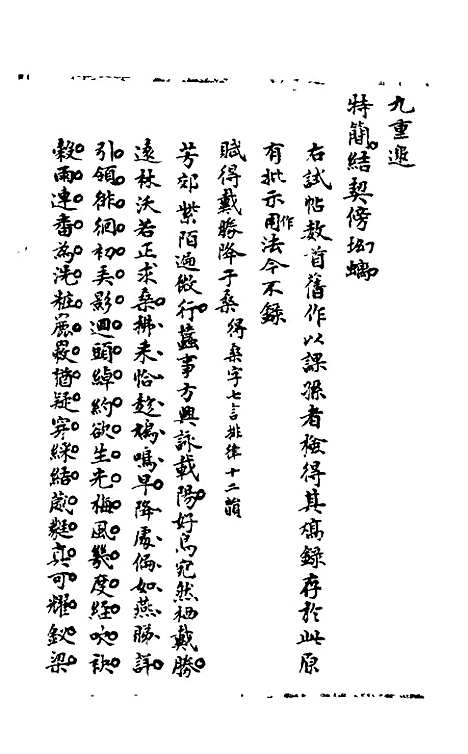 九重邀
特簡結契傍坳螭
右試帖数首舊作以課孫者檢得其稿錄存於此原
有批示作用法今不錄
賦得戴勝降于桑 得桑字七言排律十二韻
芳郊紫陌遍微行蠶事方興詠載陽好鳥宛然栖戴勝
遠林沃若正求桑耕耒恰趁鳩鳴早降處偏如燕睇詳
引領徘徊初弄影迴頭綽約欲生光梅風幾度經吹袂
穀雨連番為洗粧罥猶疑穿綵結葳蕤真可耀釵梁